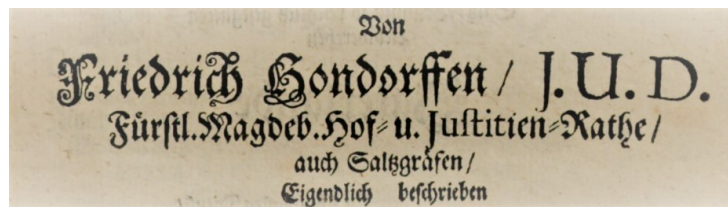 Von
Friedrich Hondorffen / J. U. D.
Fürstl. Magdeb. Hof- u. Justitien-Rathe /
auch Saltzgräfen /
Eigendlich beschrieben